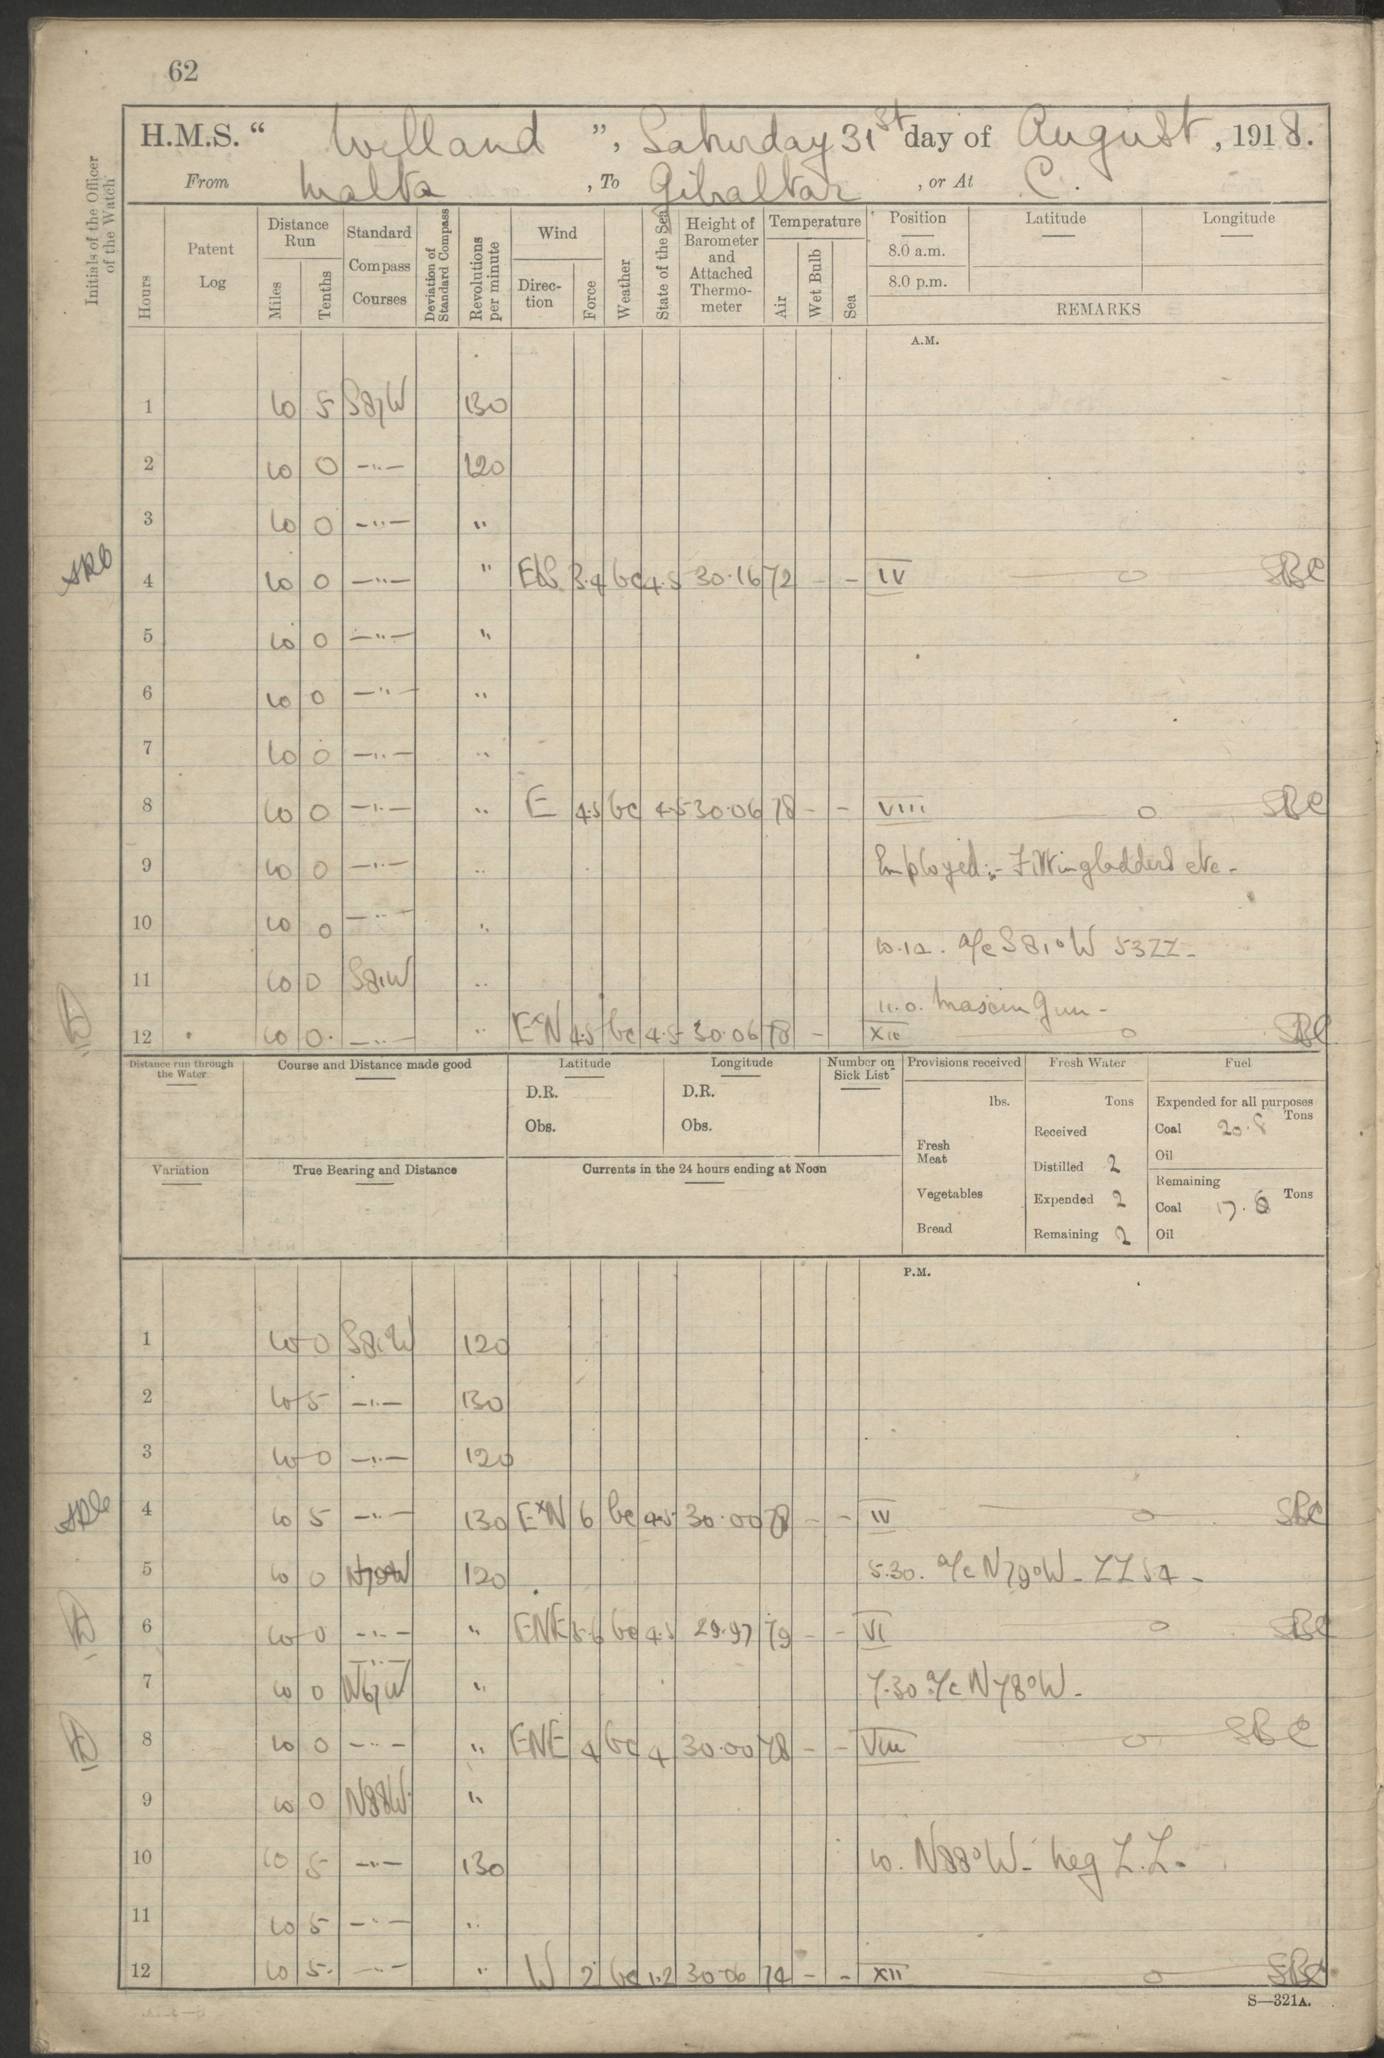 62
H.M.S. " Welland ", Saturday 31st day of August, 1918.
From Malta, To Gibraltar, or At C.
Initials of the Officer of the Watch
Hours
Patent Log
Distance Run
Miles
Tenths
Standard Compass Courses
Deviation of Standard Compass
Revolutions per minute
Wind
Direction
Force
Weather
State of the Sea
Height of Barometer and Attached Thermometer
Temperature
Air
Wet Bulb
Sea
Position
Latitude
Longitude
8.0 a.m.
8.0 p.m.
REMARKS
A.M.
1 10 5 S87W 130
2 10 0 —"— 120
3 10 0 —"— "
4 10 0 —"— " 3.4 bc 4.5 30.16 72 - - IV o SBC
5 10 0 —"— "
6 10 0 —"— "
7 10 0 —"— "
8 10 0 —"— " E 4.5 bc 4.5 30.06 78 - - VIII o SBC
9 10 0 —"— " Employed:- Fitting ladders etc -
10 10 0 —"— "
10.12. a/c S81°W 53ZZ -
11 10 0 S81W "
11.0. Gun -
12 10 0. —"— " ExN 4.5 bc 4.5 30.06 78 - XII o SBC
Distance run through the Water
Course and Distance made good
Latitude
D.R.
Obs.
Longitude
D.R.
Obs.
Number on Sick List
Provisions received
lbs.
Fresh Meat
Vegetables
Bread
Fresh Water
Tons
Received
Distilled 2
Expended 2
Remaining 2
Fuel
Expended for all purposes
Tons
Coal 20.8
Oil
Remaining
Coal 17.6 Tons
Oil
Variation
True Bearing and Distance
Currents in the 24 hours ending at Noon
P.M.
1 10 0 S81W 120
2 10 5 —"— 130
3 10 0 —"— 120
4 10 5 —"— 130 ExN 6 bc 4.5 30.00 78 - - IV o SBC
5 10 0 N79W 120 5.30. a/c N79°W - ZZ 54 -
6 10 0 —"— " ENE 5.6 bc 4.5 29.97 79 - - VI o SBC
7 10 0 N67W " 7.30 a/c N78°W -
8 10 0 —"— " ENE 4 bc 4 30.00 78 - - VIII o SBC
9 10 0 N88W "
10 10 5 —"— 130 10. N88°W - neg Z.Z.
11 10 5 —"— "
12 10 5. —"— " W 2 bc 1.2 30.00 74 - - XII o SBC
S—321A.